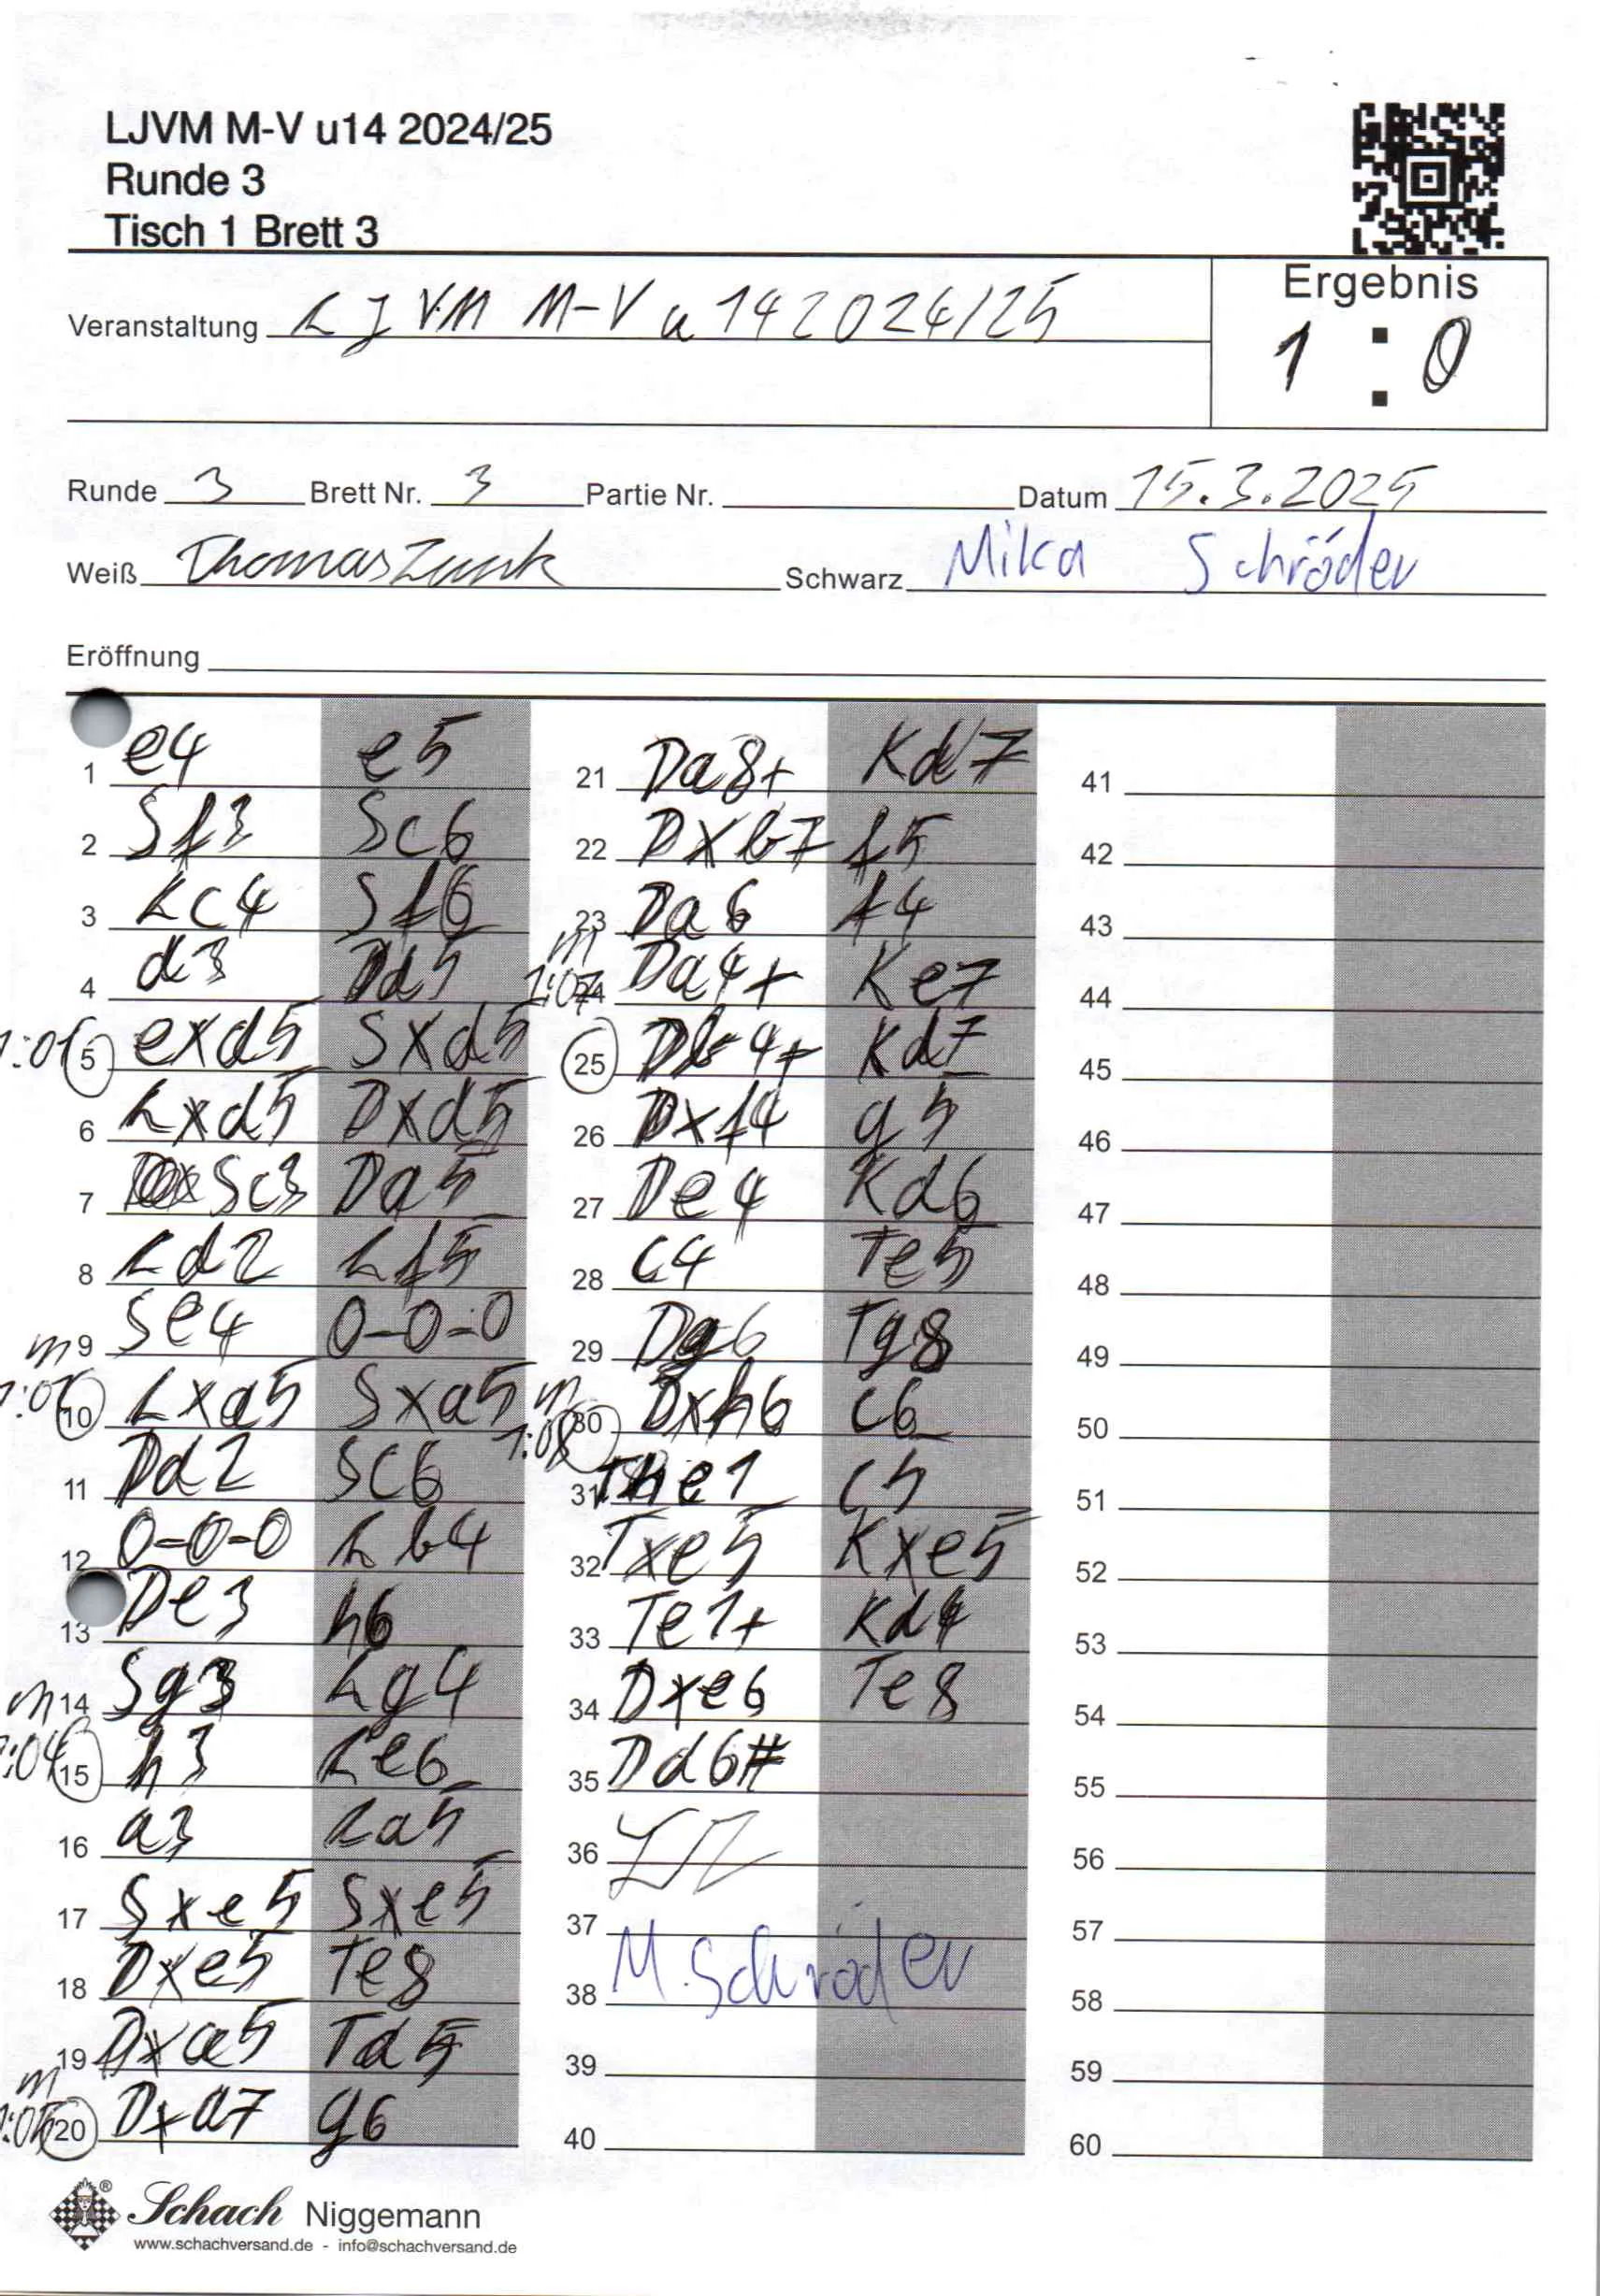 LJVM M-V u14 2024/25
Runde 3
Tisch 1 Brett 3
Ergebnis
1 : 0
Veranstaltung LJVM M-V u 14 2024/25
Runde 3 Brett Nr. 3 Partie Nr. Datum 15.3.2025
Weiß Thomas Zunk Schwarz Mika Schröder
Eröffnung
1 e4 e5
2 Sf3 Sc6
3 Lc4 Sf6
4 d3 d5
5 exd5 Sxd5
6 Lxd5 Dxd5
7 Sc3 Da5
8 Ld2 Lf5
m 9 Se4 0-0-0
10 Lxa5 Sxa5
11 Dd2 Sc6
12 0-0-0 Lb4
13 De3 h6
m 14 Sg3 Lg4
1:04 15 h3 Le6
16 a3 La5
17 Sxe5 Sxe5
18 Dxe5 Te8
19 Dxa5 Td5
m
20 Dxa7 g6
21 Da8+ Kd7
22 Dxb7 f5
23 Da6 f4
m
1:07 24 Da4+ Ke7
25 Db4+ Kd7
26 Dxf4 g5
27 De4 Kd6
28 c4 Te5
29 Dg6 Tg8
m
1:08 30 Dxh6 c6
31 The1 c5
32 Txe5 Kxe5
33 Te1+ Kd4
34 Dxe6 Te8
35 Dd6#
36
37
38 M. Schröder
39
40
41
42
43
44
45
46
47
48
49
50
51
52
53
54
55
56
57
58
59
60
Schach Niggemann
www.schachversand.de - info@schachversand.de